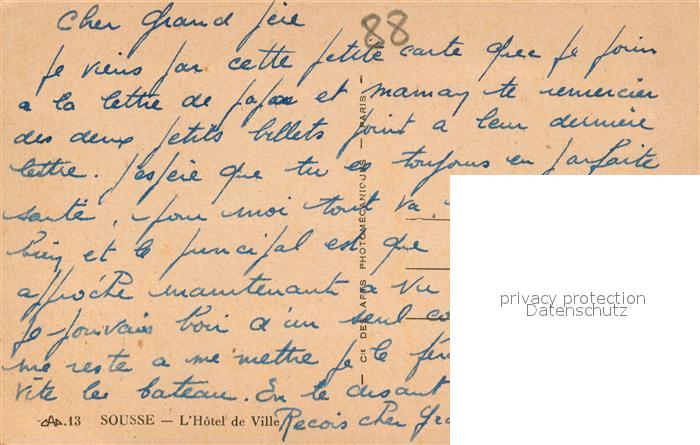 88
Cher Grand Père
je viens par cette petite carte que je join
a la lettre de papa et maman te remercier
des deux petits billets joint a leur dernière
lettre. J'espère que tu es toujours en parfaite
santé, pour moi tout va
bien et le principal est que
approche maintenant a vu
Je pouvais d'un seul
me reste a me mettre je le
vite le bateau. En te disant
Recois cher Gra
13 SOUSSE — L'Hôtel de Ville
— Cie DES ARTS PHOTOMÉCANIQUES — PARIS —
privacy protection
Datenschutz